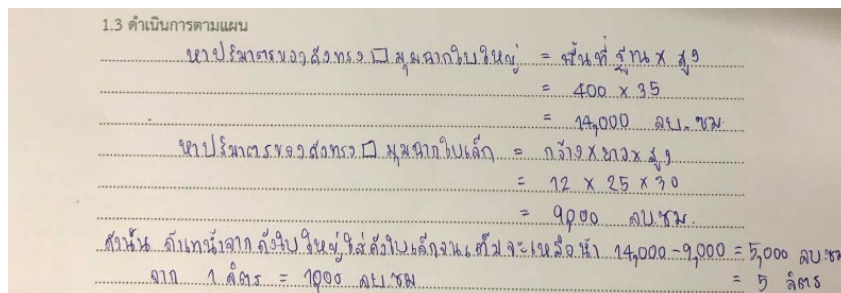 1.3 ดำเนินการตามแผน
หาปริมาตรของถังทรง □ มุมฉากใบใหญ่ = พื้นที่ ฐาน x สูง
= 400 x 35
= 14,000 ลบ.ซม.
หาปริมาตรของถังทรง □ มุมฉากใบเล็ก = กว้าง x ยาว x สูง
= 12 x 25 x 30
= 9,000 ลบ.ซม.
ดังนั้น ถ้าเทน้ำจากถังใบใหญ่ใส่ถังใบเล็กจนเต็มจะเหลือน้ำ 14,000 - 9,000 = 5,000 ลบ.ซม
จาก 1 ลิตร = 1000 ลบ.ซม = 5 ลิตร